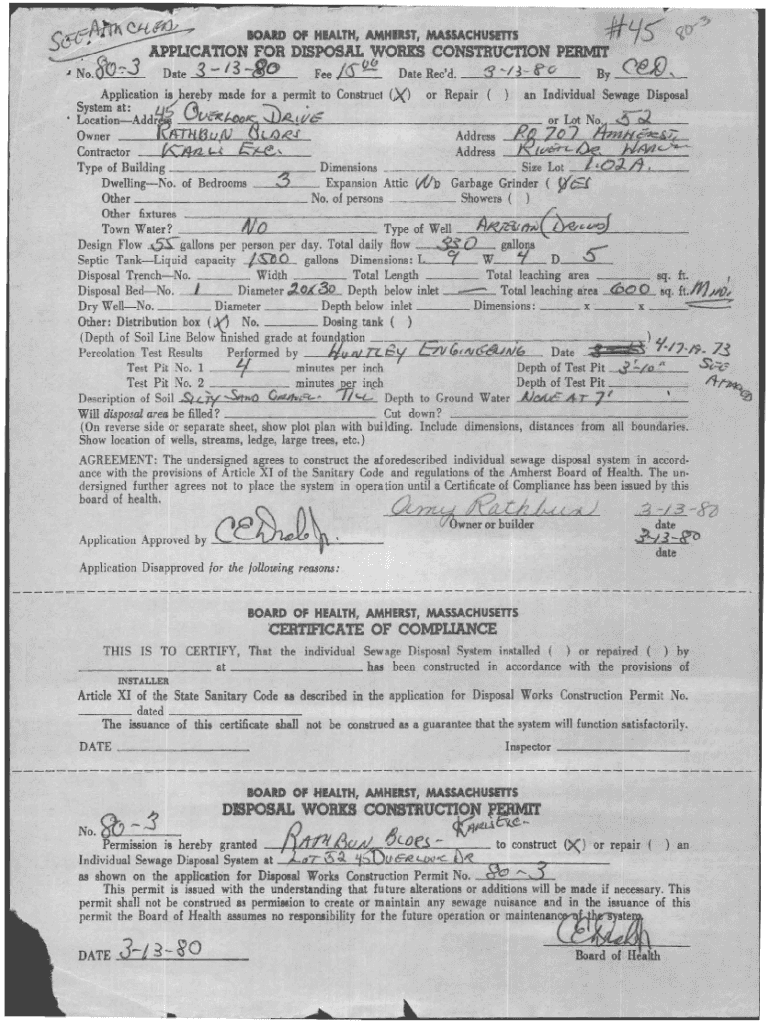 SEE ATTACHED
#45 80-3
BOARD OF HEALTH, AMHERST, MASSACHUSETTS
APPLICATION FOR DISPOSAL WORKS CONSTRUCTION PERMIT
No. 80-3 Date 3-13-80 Fee 15 00 Date Rec'd. 3-13-80 By CED.
Application is hereby made for a permit to Construct (X) or Repair ( ) an Individual Sewage Disposal
System at:
Location—Address 45 OVERLOOK DRIVE or Lot No. 52
Owner RATHBUN BLDRS Address P.O. 707 AMHERST,
Contractor KARLS EXC. Address RIVER DR
Type of Building Dimensions Size Lot 1.02 A.
Dwelling—No. of Bedrooms 3 Expansion Attic (NO Garbage Grinder ( YES
Other No. of persons Showers ( )
Other fixtures
Town Water? NO Type of Well ARTESIAN (DRILLED)
Design Flow 55 gallons per person per day. Total daily flow 330 gallons
Septic Tank—Liquid capacity 1500 gallons Dimensions: L. 9 W. 4 D. 5
Disposal Trench—No. Width Total Length Total leaching area sq. ft.
Disposal Bed—No. 1 Diameter 20x30 Depth below inlet — Total leaching area 600 sq. ft.
Dry Well—No. Diameter Depth below inlet Dimensions: x x
Other: Distribution box (X) No. Dosing tank ( )
(Depth of Soil Line Below finished grade at foundation )
Percolation Test Results Performed by HUNTLEY ENGINEERING Date 4-17-19-73
Test Pit No. 1 4 minutes per inch Depth of Test Pit 3'-10" SEE
Test Pit No. 2 minutes per inch Depth of Test Pit ATTACHED
Description of Soil SILTY SAND GRAVEL TILL Depth to Ground Water NONE AT 7'
Will disposal area be filled? Cut down?
(On reverse side or separate sheet, show plot plan with building. Include dimensions, distances from all boundaries.
Show location of wells, streams, ledge, large trees, etc.)
AGREEMENT: The undersigned agrees to construct the aforedescribed individual sewage disposal system in accord-
ance with the provisions of Article XI of the Sanitary Code and regulations of the Amherst Board of Health. The un-
dersigned further agrees not to place the system in operation until a Certificate of Compliance has been issued by this
board of health.
Amy Rathbun 3-13-80
Owner or builder date
Application Approved by 3-13-80
date
Application Disapproved for the following reasons:
BOARD OF HEALTH, AMHERST, MASSACHUSETTS
CERTIFICATE OF COMPLIANCE
THIS IS TO CERTIFY, That the individual Sewage Disposal System installed ( ) or repaired ( ) by
at has been constructed in accordance with the provisions of
INSTALLER
Article XI of the State Sanitary Code as described in the application for Disposal Works Construction Permit No.
dated
The issuance of this certificate shall not be construed as a guarantee that the system will function satisfactorily.
DATE Inspector
BOARD OF HEALTH, AMHERST, MASSACHUSETTS
DISPOSAL WORKS CONSTRUCTION PERMIT
No. 80-3
Permission is hereby granted RATHBUN BLDRS- KARLS EXC- to construct (X) or repair ( ) an
Individual Sewage Disposal System at LOT 52 45 OVERLOOK DR
as shown on the application for Disposal Works Construction Permit No. 80-3
This permit is issued with the understanding that future alterations or additions will be made if necessary. This
permit shall not be construed as permission to create or maintain any sewage nuisance and in the issuance of this
permit the Board of Health assumes no responsibility for the future operation or maintenance of the system.
DATE 3-13-80
Board of Health